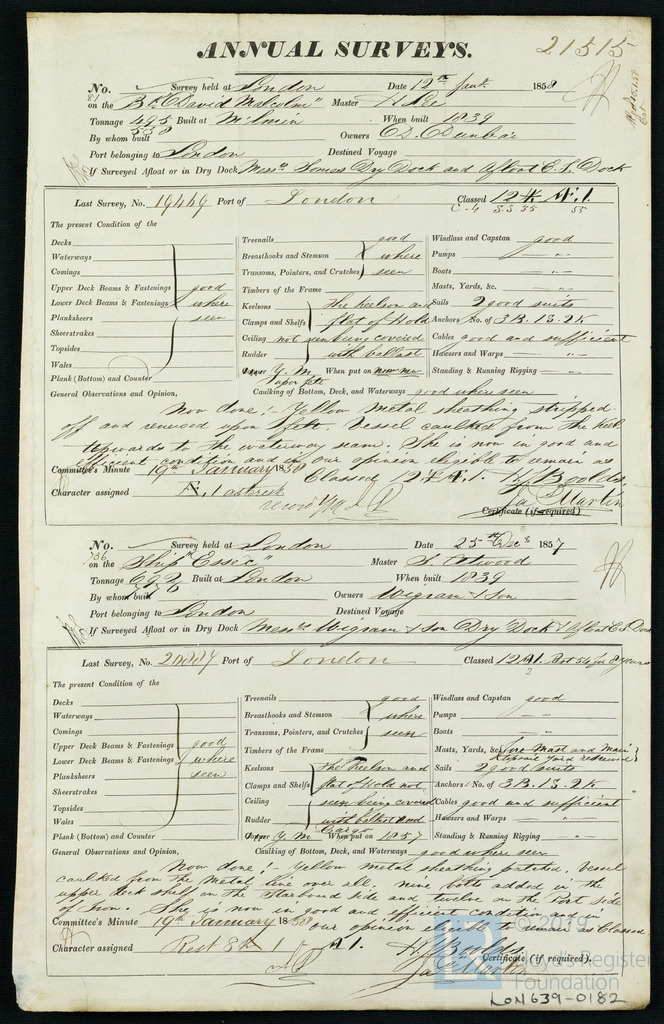 ANNUAL SURVEYS.
21515
No. Survey held at London Date 12th Jany. 1858
81
on the Bk "David Malcolm" Master H. Rae
Tonnage 495 Built at When built 1839
558
By whom built Owners D. Dunbar
Port belonging to London Destined Voyage
If Surveyed Afloat or in Dry Dock Messrs. Somes Dry Dock and Afloat E. I. Dock
Last Survey, No. 19449 Port of London Classed 12 A.1.
The present Condition of the
Decks
Waterways
Comings
Upper Deck Beams & Fastenings good
Lower Deck Beams & Fastenings where
Planksheers seen
Sheerstrakes
Topsides
Wales
Plank (Bottom) and Counter
Treenails good
Breasthooks and Stemson where
Transoms, Pointers, and Crutches seen
Timbers of the Frame
Keelsons The Keelson and
Clamps and Shelfs flat of Hold
Ceiling not seen being covered
Rudder with ballast
Copper Y. M. When put on now new
upon felt
Windlass and Capstan good
Pumps — " —
Boats — " —
Masts, Yards, &c. — " —
Sails 2 good suits
Anchors No. of 3 B. 1 S. 2 K
Cables good and sufficient
Hawsers and Warps — " —
Standing & Running Rigging — " —
General Observations and Opinion, Caulking of Bottom, Deck, and Waterways good where seen
Now done :- Yellow Metal sheathing stripped
off and renewed upon felt. Vessel caulked from the keel
upwards to the waterway seam. She is now in good and
efficient condition and in our opinion eligible to remain as
Committee's Minute 19th January 1858 Classed 12 A.1.
Character assigned A.1
Ja Martin
Certificate (if required)
No. Survey held at London Date 25th Decr 1857
on the Ship "Essex" Master S. Attwood
Tonnage Built at London When built 1839
By whom built Owners Wigram & Son
Port belonging to London Destined Voyage
If Surveyed Afloat or in Dry Dock Messrs Wigram & Son Dry Dock & Afloat E. I. Dock
Last Survey, No. Port of London Classed 12 A1. Rest 54 for 8 years
The present Condition of the
Decks
Waterways
Comings
Upper Deck Beams & Fastenings good
Lower Deck Beams & Fastenings where
Planksheers seen
Sheerstrakes
Topsides
Wales
Plank (Bottom) and Counter
Treenails good
Breasthooks and Stemson where
Transoms, Pointers, and Crutches seen
Timbers of the Frame
Keelsons The Keelson and
Clamps and Shelfs flat of Hold not
Ceiling seen being covered
Rudder with ballast and
Cargo
Copper Y. M. When put on 1857
Windlass and Capstan good
Pumps — " —
Boats — " —
Masts, Yards, &c. fore Mast and Main
Yard renewed
Sails 2 good suits
Anchors No. of 3 B. 1 S. 2 K
Cables good and sufficient
Hawsers and Warps — " —
Standing & Running Rigging — " —
General Observations and Opinion, Caulking of Bottom, Deck, and Waterways good where seen
Now done :- Yellow metal sheathing patched, Vessel
caulked from the Metal line over all, nine bolts added in the
upper deck shelf on the starboard side and twelve on the Port side
of Iron. She is now in good and efficient condition and in
our opinion eligible to remain as Classed
Committee's Minute 19th January 1858
Character assigned Rest A1.
Certificate (if required).
Ja Martin
© 2019
Lloyd's Register
Foundation
LON639-0182